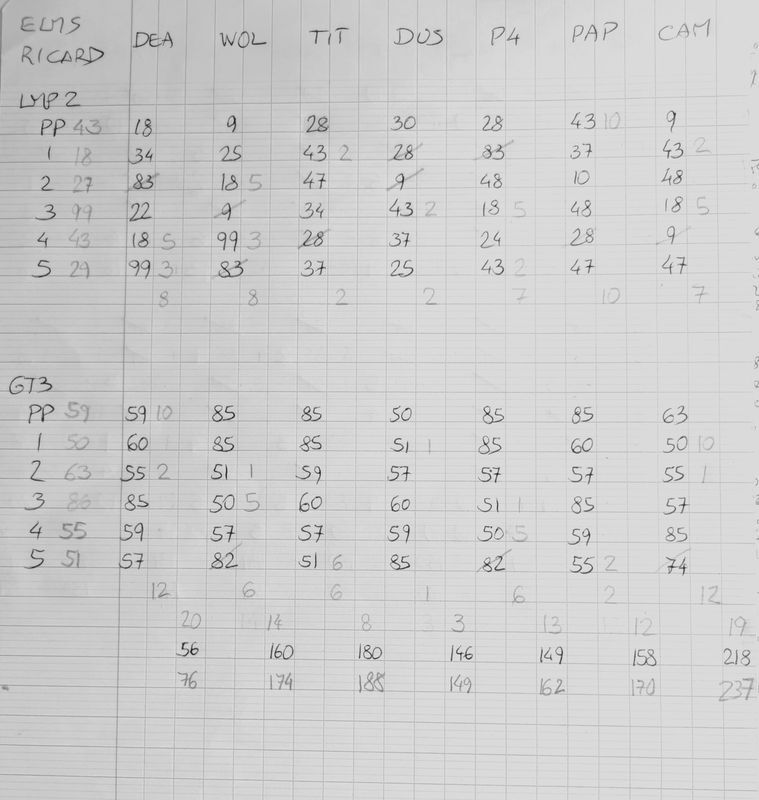 ELMS
RICARD DEA WOL TIT DUS P4 PAP CAM
LMP2
PP 43 18 9 28 30 28 43 10 9
1 18 34 25 43 2 28 83 37 43 2
2 27 83 18 5 47 9 48 10 48
3 99 22 9 34 43 2 18 5 48 18 5
4 43 18 5 99 3 28 37 24 28 9
5 29 99 3 83 37 25 43 2 47 47
8 8 2 2 7 10 7
GT3
PP 59 59 10 85 85 50 85 85 63
1 50 60 85 85 51 1 85 60 50 10
2 63 55 2 51 1 59 57 57 57 55 1
3 86 85 50 5 60 60 51 1 85 57
4 55 59 57 57 59 50 5 59 85
5 51 57 82 51 6 85 82 55 2 74
12 6 6 1 6 2 12
20 14 8 3 13 12 19
56 160 180 146 149 158 218
76 174 188 149 162 170 237